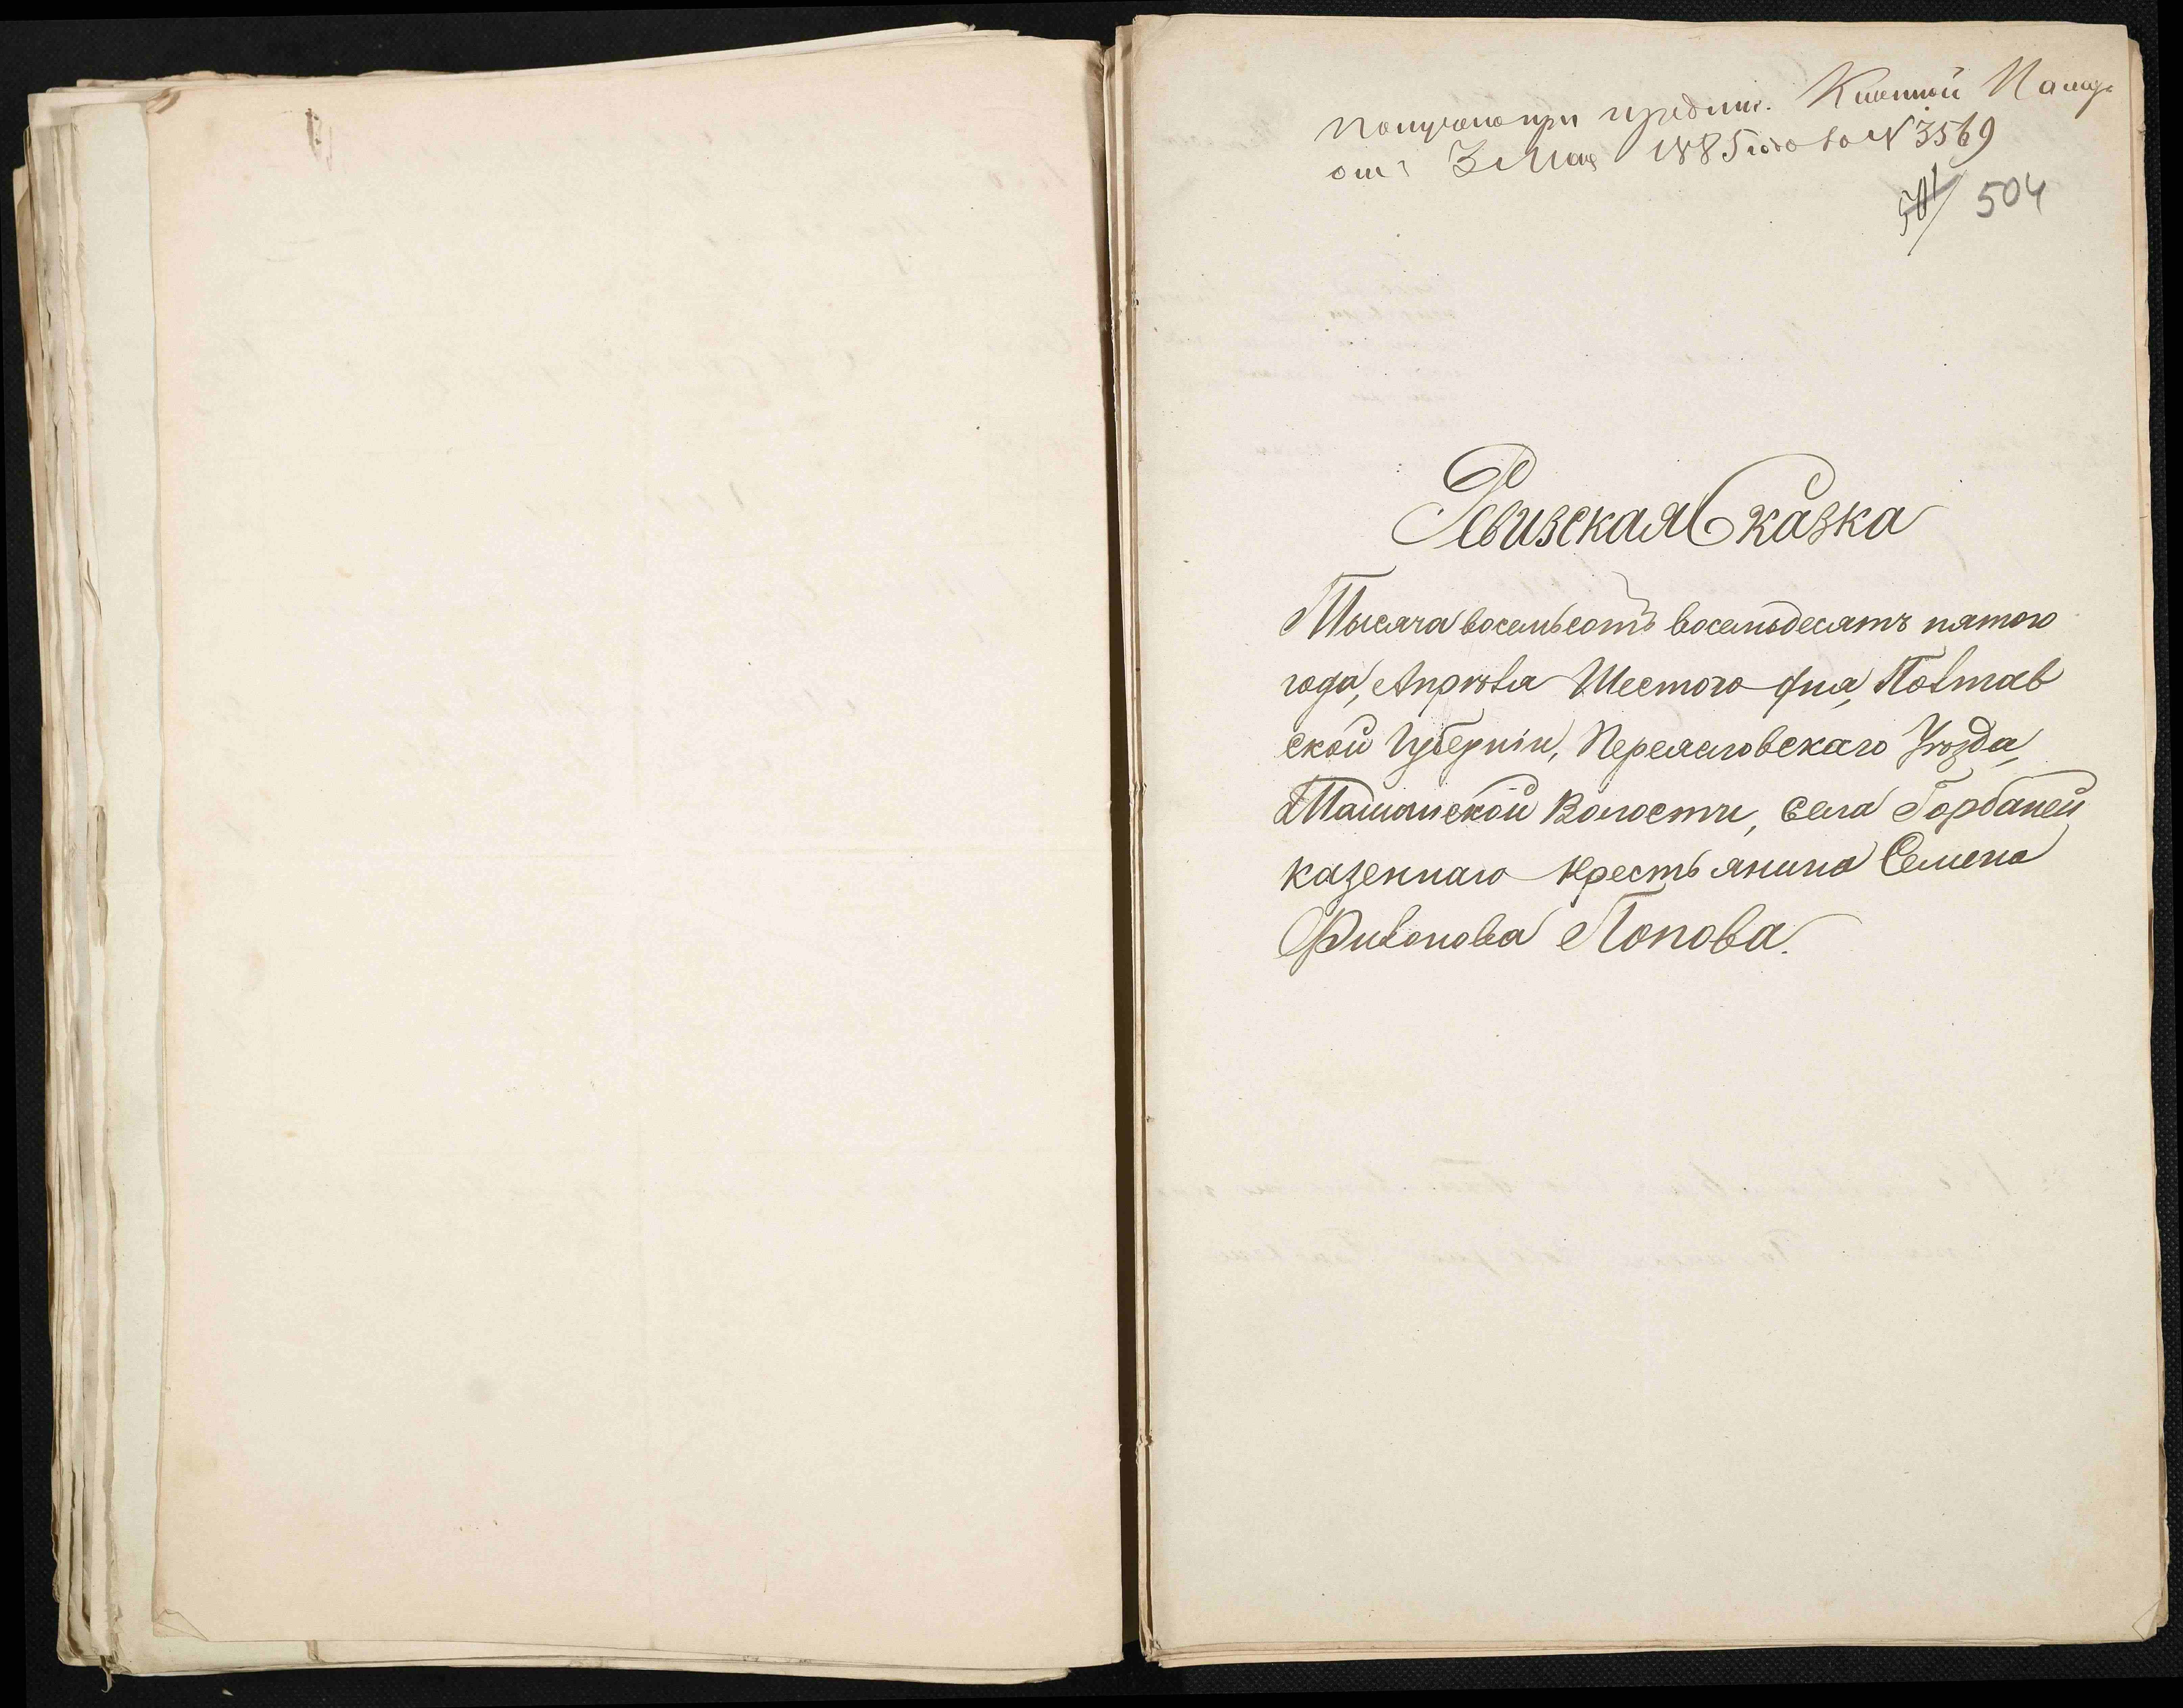 Получено при предпис. Казенной Палаты
отъ 3 Мая 1885 года за № 3569
501 504
Ревизская Сказка
Тысяча восемьсотъ восемьдесятъ пятого
года, Апрѣля Шестого дня, Полтав
ской Губерніи, Переяславскаго Уѣзда,
Ташанской Волости, села Горбаней
казеннаго крестьянина Семена
Филонова Попова.